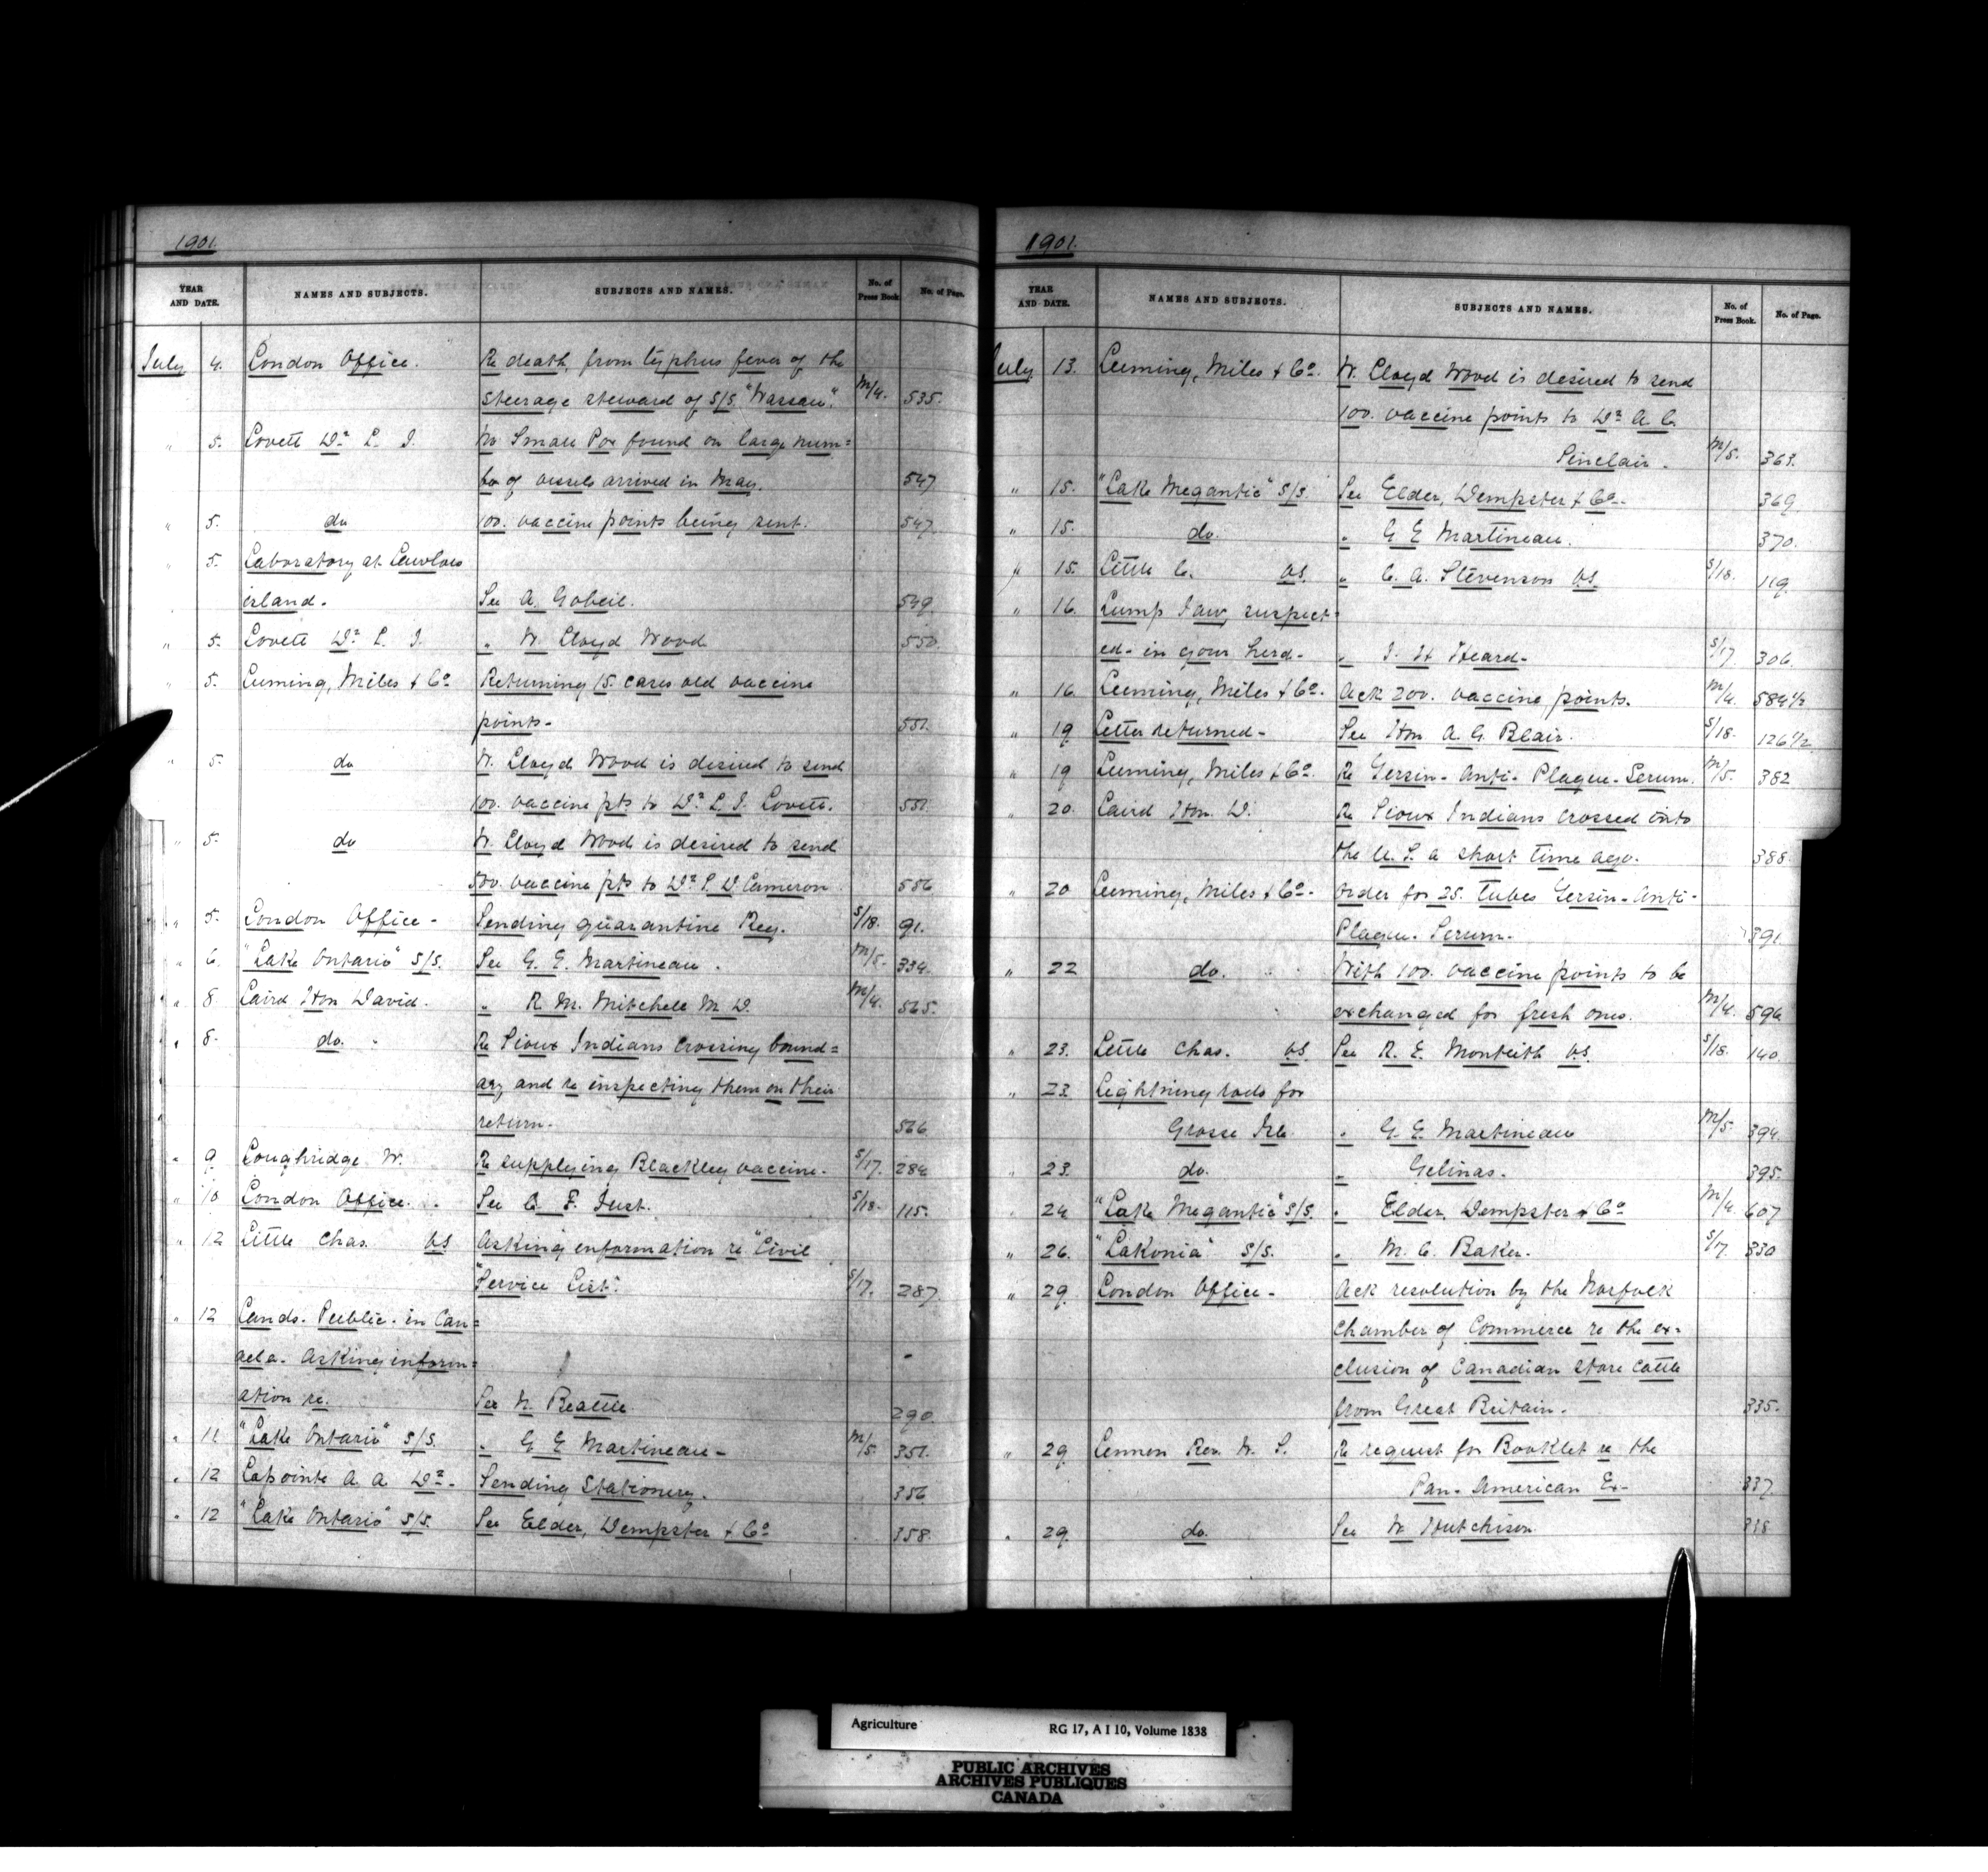 1901.
YEAR AND DATE. NAMES AND SUBJECTS. SUBJECTS AND NAMES. No. of Press Book. No. of Page.
July 4. London Office. Re death, from typhus fever of the
steerage steward of S/S. "Wassau". M/4. 535.
" 5. Lovett Dr. L. J. No Small Pox found on large num=
ber of vessels arrived in May. 547
" 5. do 100. vaccine points being sent. 547.
" 5. Laboratory at Lawlors
island. See A. Gobeil. 549
" 5. Lovett Dr. L. J. " W. Lloyd Wood 550.
" 5. Leeming, Miles & Co. Returning 15. cases old vaccine
points- 551.
" 5. do W. Lloyd Wood is desired to send
100. vaccine pts to Dr. L. J. Lovett. 551.
" 5. do W. Lloyd Wood is desired to send
500. vaccine pts to Dr. P. D. Cameron. 556
" 5. London Office - Sending quarantine Reg. S/18. 91.
" 6. "Lake Ontario" S/S. See G. E. Martineau. M/5. 334.
" 8. Laird Hon David. " R. M. Mitchell M. D. M/4. 565.
" 8. do. Re Sioux Indians crossing bound=
ary and re inspecting them on their
return- 566
" 9. Loughridge W. Re supplying Blackleg vaccine. S/17. 284
" 10 London Office. See C. F. Just. S/18. 115.
" 12 Little Chas. VS Asking information re "Civil
"Service List". S/17. 287
" 12 Lands. Public. in Can=
ada. Asking inform=
ation re. See N. Beattie. 290
" 11 "Lake Ontario" S/S. " G. E Martineau- M/5. 351.
" 12 Lapointe A. A. Dr. - Sending Stationery. 356
" 12 "Lake Ontario" S/S. See Elder, Dempster & Co 358.
1901.
YEAR AND DATE. NAMES AND SUBJECTS. SUBJECTS AND NAMES. No. of Press Book. No. of Page.
July 13. Leeming, Miles & Co. W. Lloyd Wood is desired to send
100. vaccine points to Dr. A. C.
Sinclair. M/5. 363.
" 15. "Lake Megantic" S/S. See Elder, Dempster & Co- 369
" 15. do. " G E Martineau. 370.
" 15. Little C. VS. " C. A. Stevenson VS. S/18. 119
" 16. Lump Jaw, suspect=
ed- in your herd- " J. H Heard- S/17. 306.
" 16. Leeming, Miles & Co. Ack 200. vaccine points. M/4. 584 1/2
" 19 Letter returned- See Hon A. G. Blair. S/18. 126 1/2
" 19 Leeming, Miles & Co. Re Yersin- Anti- Plague- Serum. M/5. 382
" 20. Laird Hon. D. Re Sioux Indians crossed into
the U. S. a short time ago. 388.
" 20 Leeming, Miles & Co- Order for 25. tubes Yersin-Anti-
Plague- Serum- 391.
" 22 do. With 100. vaccine points to be
exchanged for fresh ones. M/4. 596
" 23. Little Chas. VS See R. E. Monteith VS. S/18. 140.
" 23. Lightning rods for
Grosse Isle " G. E. Martineau M/5. 394.
" 23. do. " Gelinas. 395.
" 24 "Lake Megantic" S/S. " Elder, Dempster & Co M/4. 607
" 26. "Lakonia" S/S. " M. C. Baker. S/17. 330
" 29. London Office- Ack resolution by the Norfolk
Chamber of Commerce re the ex-
clusion of Canadian store cattle
from Great Britain. 335.
" 29 Lennon Rev. W. S. Re request for Booklet re the
Pan- American Ex- 337
" 29. do. See W Hutchison
Agriculture RG 17, A I 10, Volume 1838
PUBLIC ARCHIVES
ARCHIVES PUBLIQUES
CANADA